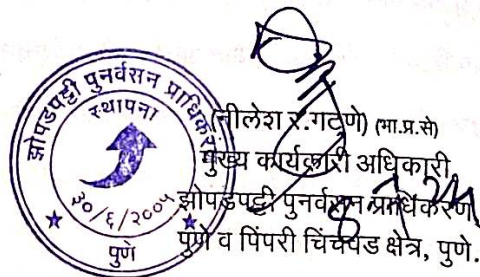 झोपडपट्टी पुनर्वसन प्राधिकरण
स्थापना
३०/६/२००५
पुणे
(नीलेश र.गटणे) (भा.प्र.से)
मुख्य कार्यकारी अधिकारी
झोपडपट्टी पुनर्वसन प्राधिकरण,
पुणे व पिंपरी चिंचवड क्षेत्र, पुणे.